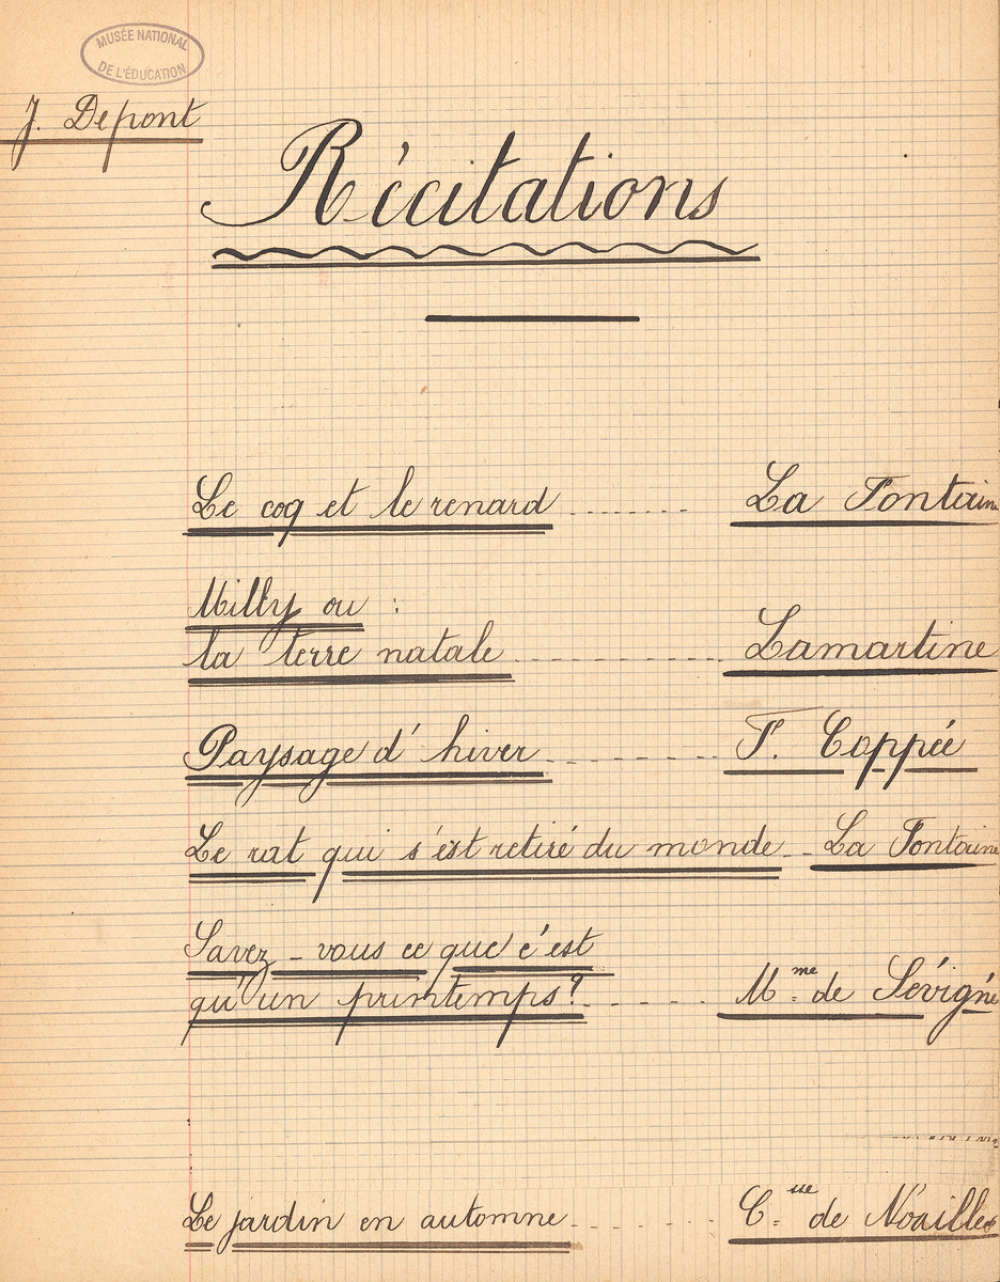 MUSÉE NATIONAL
DE L'ÉDUCATION
J. Depont
Récitations
Le coq et le renard ........ La Fontain
Milly ou :
la terre natale .............. Lamartine
Paysage d'hiver ........... F. Coppée
Le rat qui s'est retiré du monde .. La Fontaine
Savez-vous ce que c'est
qu'un printemps? ........ Mme de Sévigné
Le jardin en automne ........ Csse de Noailles